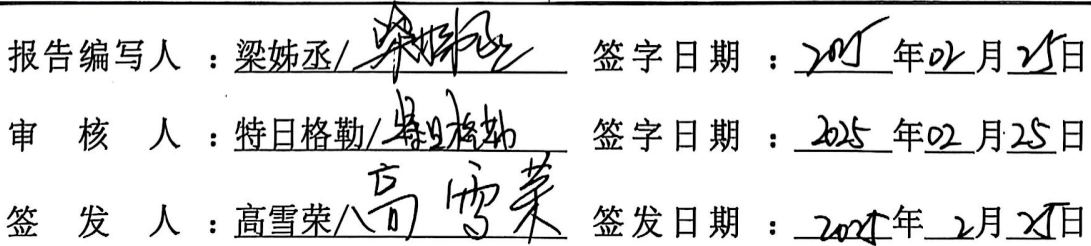 报告编写人：梁姊丞/梁姊丞 签字日期：2025年02月25日
审核人：特日格勒/特日格勒 签字日期：2025年02月25日
签发人：高雪荣/高雪荣 签发日期：2025年2月25日